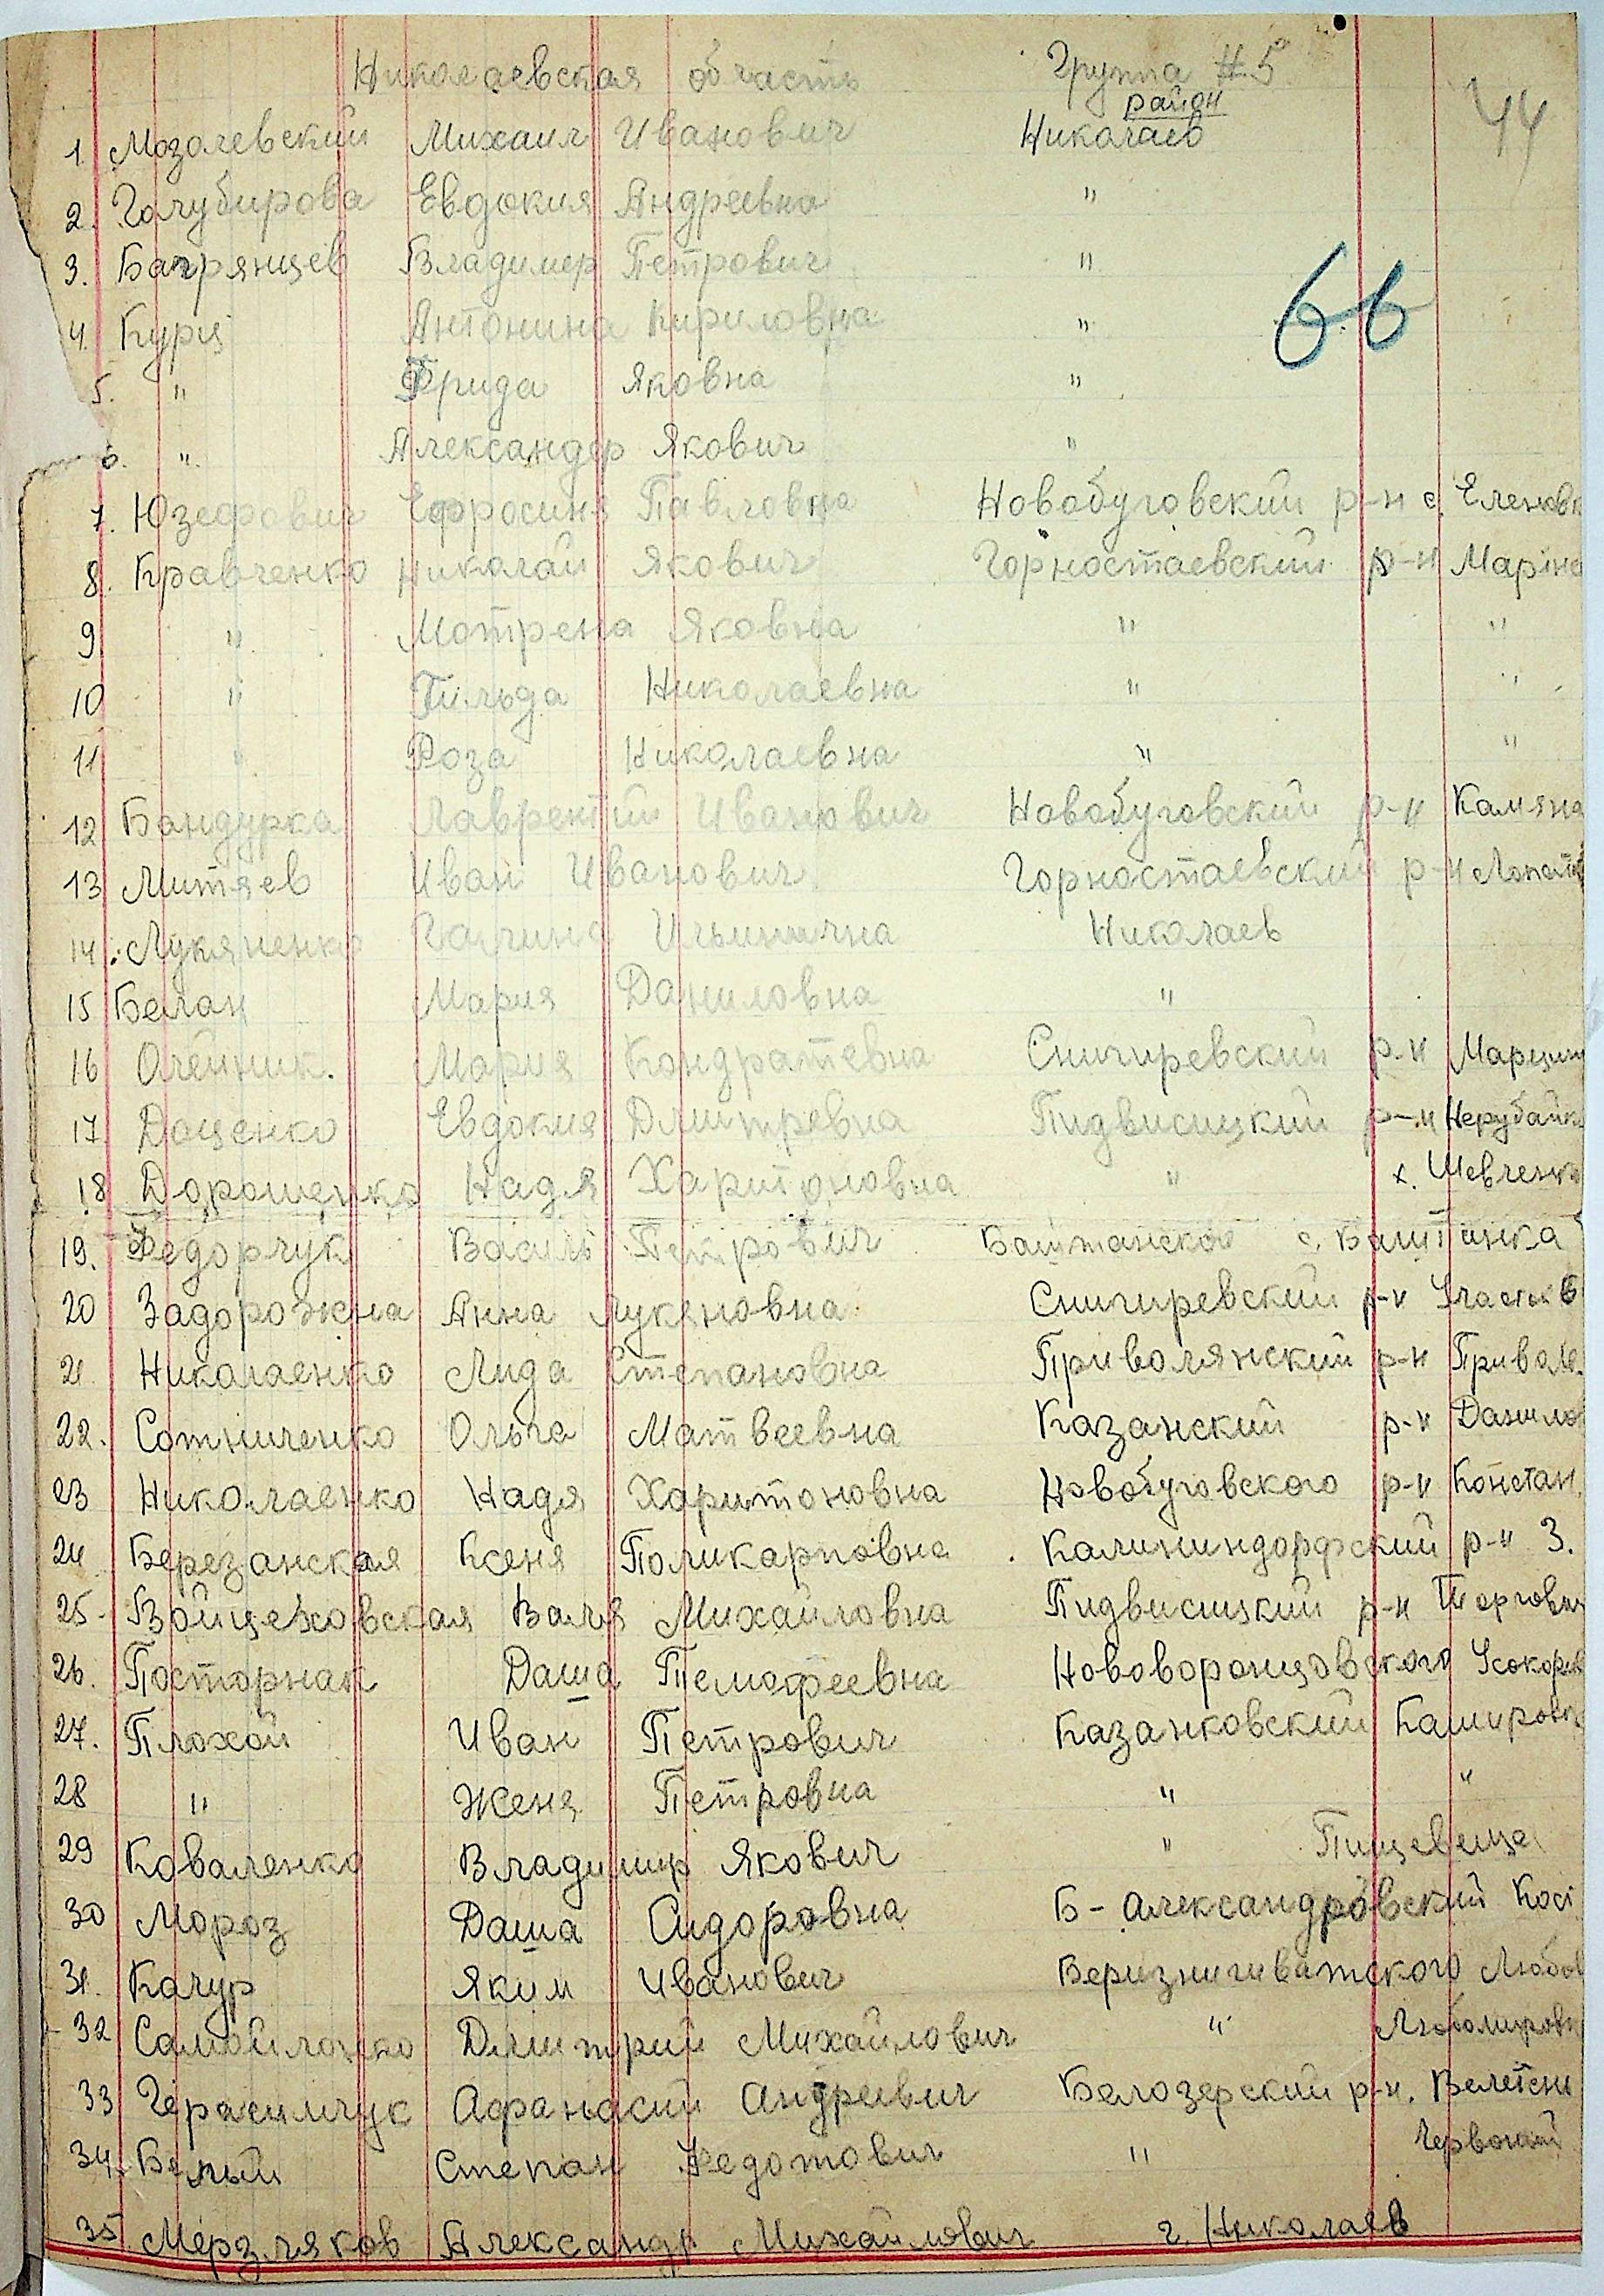 Николаевская область Группа #5
район
44
1. Мозолевский Михаил Иванович Николаев
2. Голубирова Евдокия Андреевна "
3. Багрянцев Владимер Петрович "
66
4. Курц Антонина Кириловна "
5. " Фрида Яковна "
6. " Александер Якович "
7. Юзефович Ефросиня Павловна Новобуговский р-н с. Еленовк
8. Кравченко Николай Якович Горностаевский р-н Маріно
9 " Мотрена Яковна " "
10 " Тильда Николаевна " "
11 " Роза Николаевна " "
12 Бандурка Лаврентий Иванович Новобуговский р-н Камяна
13 Митяев Иван Иванович Горностаевский р-н Лопат
14. Лукяненко Галина Ильинична Николаев
15 Белан Мария Даниловна "
16 Олейник. Мария Кондратевна Снигиревский р-н
17 Доценко Евдокия Дмитревна Пидвисицкий р-н Нерубайк
18 Дорошенко Надя Харитоновна " х. Шевченко
19. Федорчук Василь Петрович Баштанской с. Баштанка
20 Задорожна Анна Лукяновна Снигиревский р-н Участок Б
21 Николаенко Лида Степановна Приволянский р-н Приволе
22. Сотниченко Ольга Матвеевна Казанский р-н Данило
23 Николаенко Надя Харитоновна Новобуговского р-н Констан.
24 Березанская Ксеня Поликарповна Калининдорфский р-н З.
25 - Войцеховская Валя Михайловна Пидвисицкий р-н Торгови
26. Посторнак Даша Темофеевна Нововоронцовского
27. Плохой Иван Петрович Казанковский Кашировк
28 " Женя Петровна " "
29 Коваленко Владимир Якович "
30 Мороз Даша Сидоровна Б-Александровский Кос
31. Качур Яким Иванович Веризнигиватского Любов
32 Самойленко Дмитрий Михайлович " Любомировк
33 Герасимчук Афанасий Андреевич Белозерский р-н. Велетен
34. Белый Степан Федотович "
35 Мерзляков Александр Михайлович г. Николаев